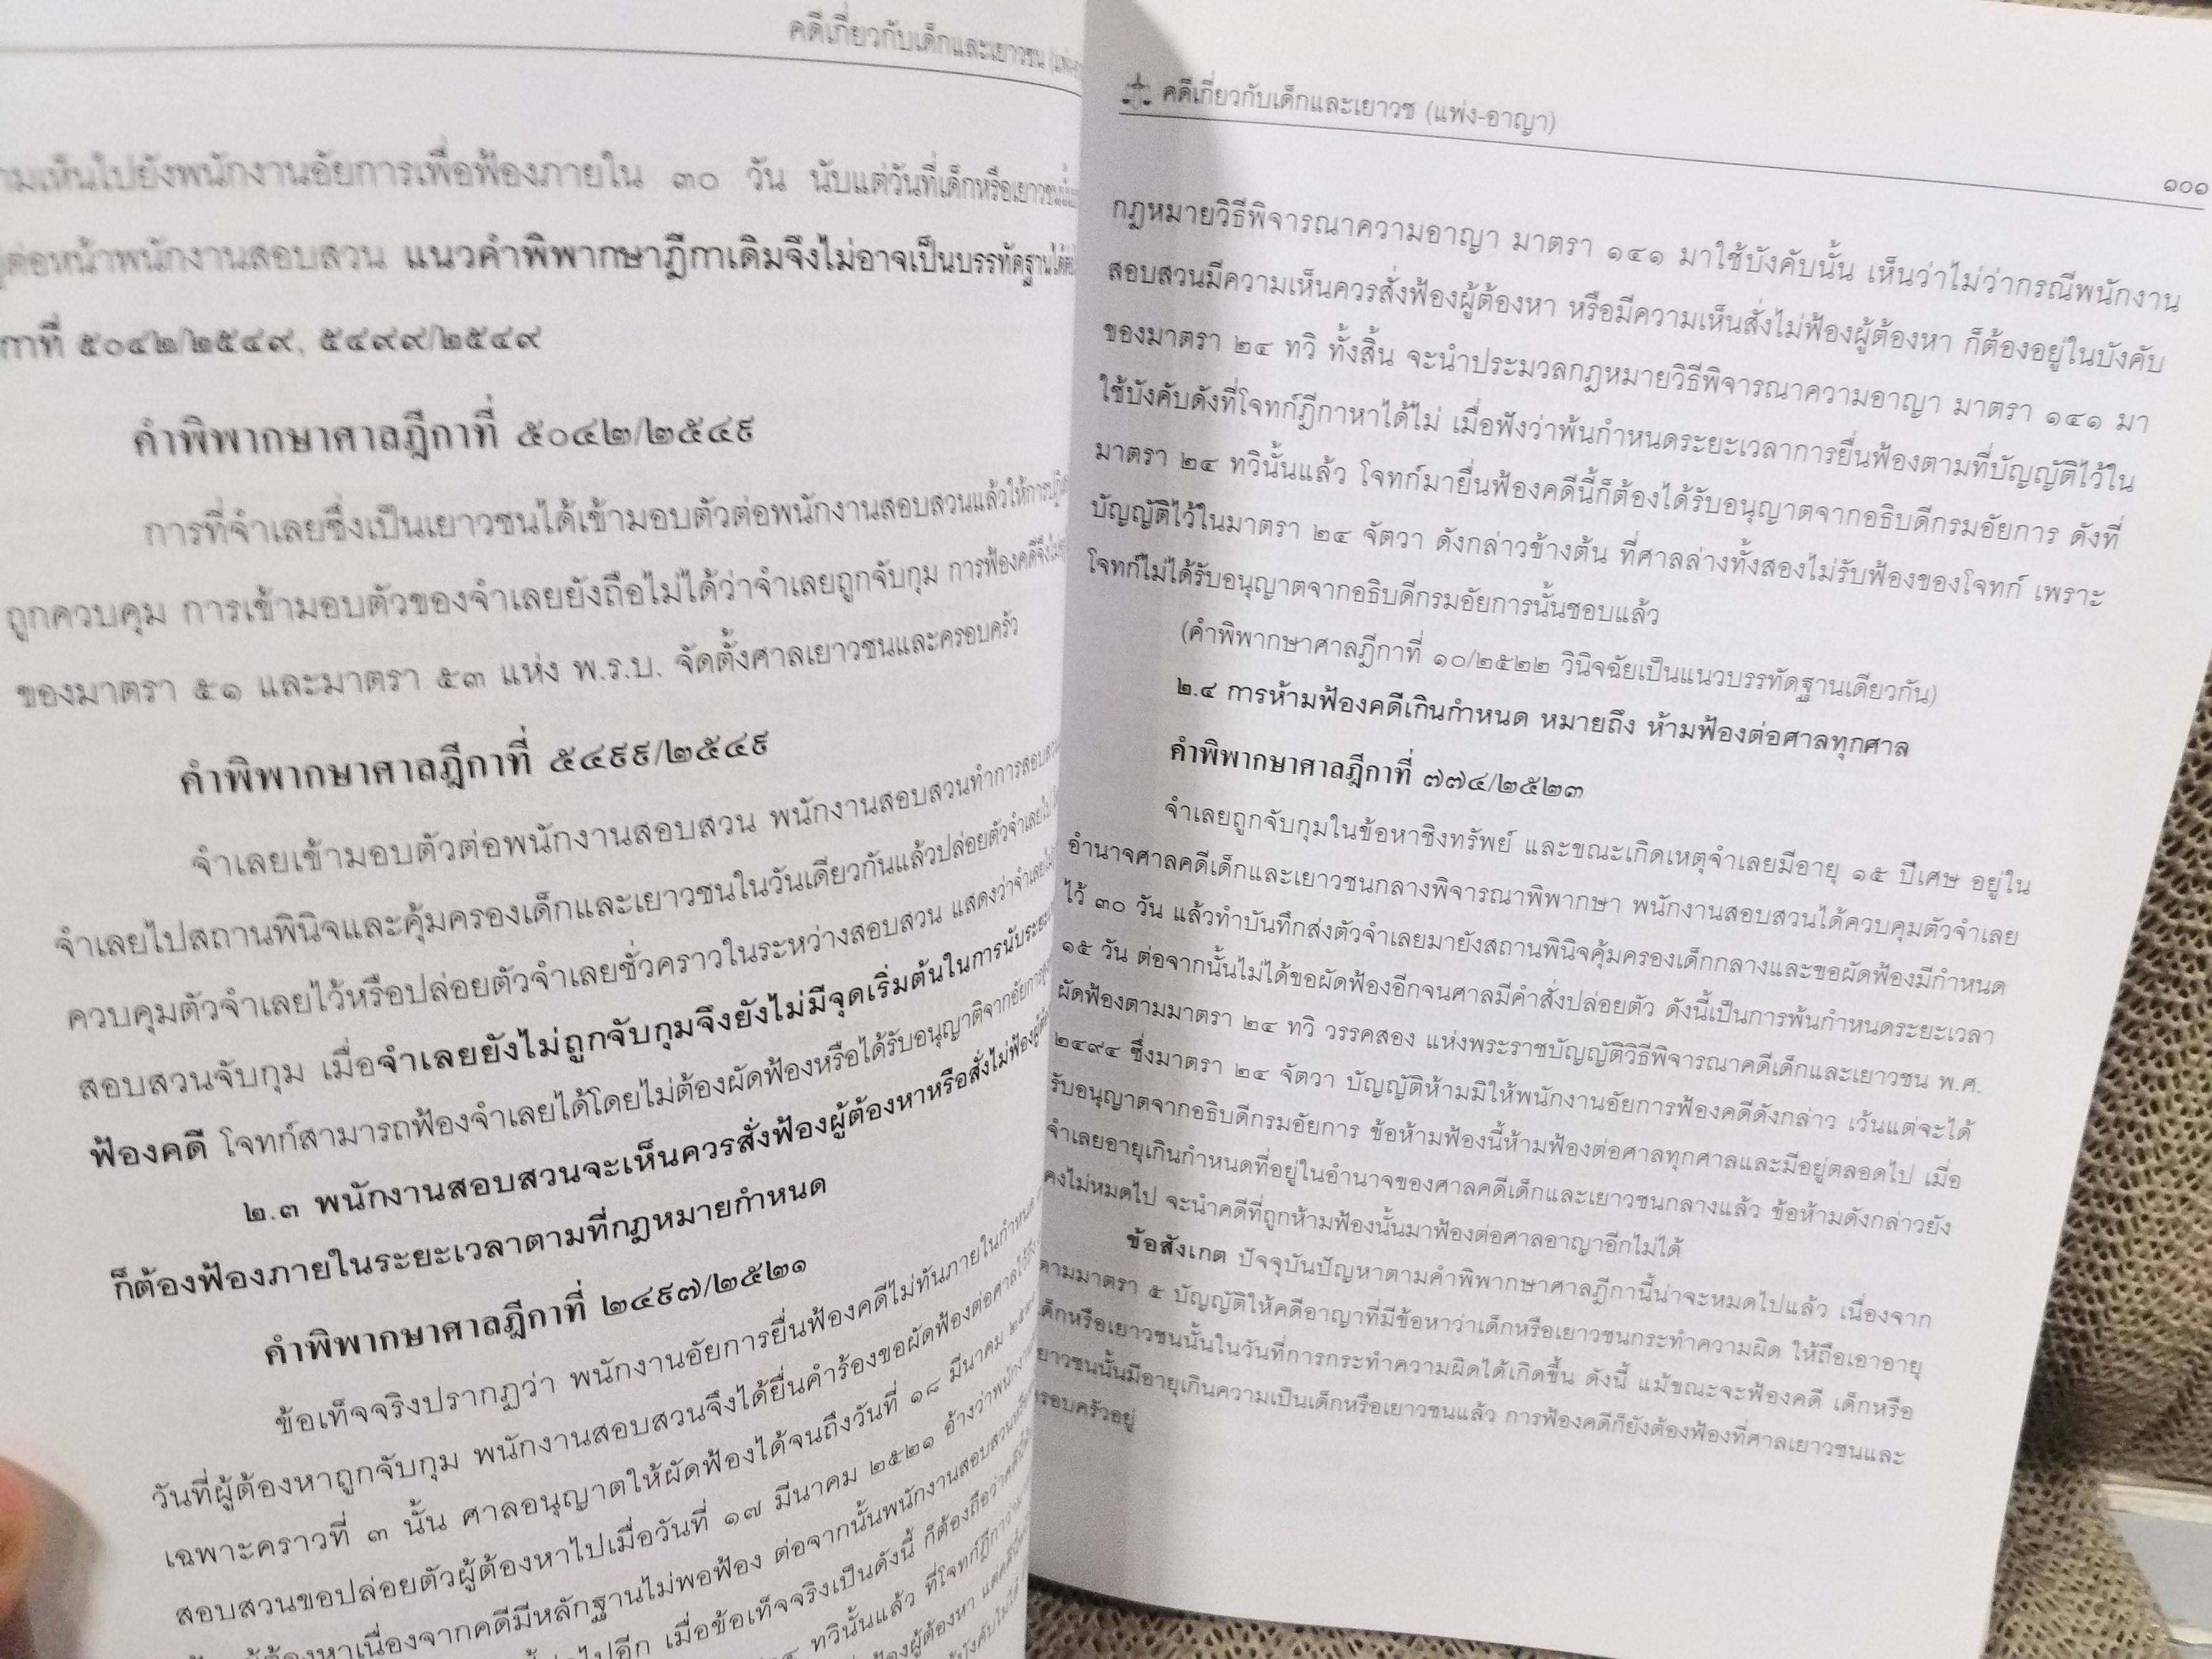 คดีเกี่ยวกับเด็กและเยาวชน
ามเห็นไปยังพนักงานอัยการเพื่อฟ้องภายใน ๓๐ วัน นับแต่วันที่เด็กหรือเยาวชนนั้น
ต่อหน้าพนักงานสอบสวน แนวคำพิพากษาฎีกาเดิมจึงไม่อาจเป็นบรรทัดฐานได้
กาที่ ๕๐๔๒/๒๕๔๙, ๕๔๙๙/๒๕๔๙
คำพิพากษาศาลฎีกาที่ ๕๐๔๒/๒๕๔๙
การที่จำเลยซึ่งเป็นเยาวชนได้เข้ามอบตัวต่อพนักงานสอบสวนแล้วให้การ
ถูกควบคุม การเข้ามอบตัวของจำเลยยังถือไม่ได้ว่าจำเลยถูกจับกุม การฟ้องคดีจึงไม่
ของมาตรา ๕๑ และมาตรา ๕๓ แห่ง พ.ร.บ. จัดตั้งศาลเยาวชนและครอบครัว
คำพิพากษาศาลฎีกาที่ ๕๔๙๙/๒๕๔๙
จำเลยเข้ามอบตัวต่อพนักงานสอบสวน พนักงานสอบสวนทำการสอบสวน
จำเลยไปสถานพินิจและคุ้มครองเด็กและเยาวชนในวันเดียวกันแล้วปล่อยตัวจำเลยไป
ควบคุมตัวจำเลยไว้หรือปล่อยตัวจำเลยชั่วคราวในระหว่างสอบสวน แสดงว่าจำเลย
สอบสวนจับกุม เมื่อจำเลยยังไม่ถูกจับกุมจึงยังไม่มีจุดเริ่มต้นในการนับระยะ
ฟ้องคดี โจทก์สามารถฟ้องจำเลยได้โดยไม่ต้องผัดฟ้องหรือได้รับอนุญาติจากอัยการ
๒.๓ พนักงานสอบสวนจะเห็นควรสั่งฟ้องผู้ต้องหาหรือสั่งไม่ฟ้อง
ก็ต้องฟ้องภายในระยะเวลาตามที่กฎหมายกำหนด
คำพิพากษาศาลฎีกาที่ ๒๔๙๗/๒๕๒๑
ข้อเท็จจริงปรากฏว่า พนักงานอัยการยื่นฟ้องคดีไม่ทันภายในกำหนด
วันที่ผู้ต้องหาถูกจับกุม พนักงานสอบสวนจึงได้ยื่นคำร้องขอผัดฟ้องต่อศาล
เฉพาะคราวที่ ๓ นั้น ศาลอนุญาตให้ผัดฟ้องได้จนถึงวันที่ ๑๘ มีนาคม
สอบสวนขอปล่อยตัวผู้ต้องหาไปเมื่อวันที่ ๑๗ มีนาคม ๒๕๒๑ อ้างว่าพนักงาน
ต้องหาเนื่องจากคดีมีหลักฐานไม่พอฟ้อง ต่อจากนั้นพนักงานสอบสวน
ไปอีก เมื่อข้อเท็จจริงเป็นดังนี้ ก็ต้องถือว่า
ทวินั้นแล้ว ที่โจทก์ฎีกาว่า
ฟ้องผู้ต้องหา
คดีเกี่ยวกับเด็กและเยาวช (แพ่ง-อาญา)
๑๐๑
กฎหมายวิธีพิจารณาความอาญา มาตรา ๑๔๑ มาใช้บังคับนั้น เห็นว่าไม่ว่ากรณีพนักงาน
สอบสวนมีความเห็นควรสั่งฟ้องผู้ต้องหา หรือมีความเห็นสั่งไม่ฟ้องผู้ต้องหา ก็ต้องอยู่ในบังคับ
ของมาตรา ๒๔ ทวิ ทั้งสิ้น จะนำประมวลกฎหมายวิธีพิจารณาความอาญา มาตรา ๑๔๑ มา
ใช้บังคับดังที่โจทก์ฎีกาหาได้ไม่ เมื่อฟังว่าพ้นกำหนดระยะเวลาการยื่นฟ้องตามที่บัญญัติไว้ใน
มาตรา ๒๔ ทวินั้นแล้ว โจทก์มายื่นฟ้องคดีนี้ก็ต้องได้รับอนุญาตจากอธิบดีกรมอัยการ ดังที่
บัญญัติไว้ในมาตรา ๒๔ จัตวา ดังกล่าวข้างต้น ที่ศาลล่างทั้งสองไม่รับฟ้องของโจทก์ เพราะ
โจทก์ไม่ได้รับอนุญาตจากอธิบดีกรมอัยการนั้นชอบแล้ว
(คำพิพากษาศาลฎีกาที่ ๑๐/๒๕๒๒ วินิจฉัยเป็นแนวบรรทัดฐานเดียวกัน)
๒.๔ การห้ามฟ้องคดีเกินกำหนด หมายถึง ห้ามฟ้องต่อศาลทุกศาล
คำพิพากษาศาลฎีกาที่ ๗๗๔/๒๕๒๓
จำเลยถูกจับกุมในข้อหาชิงทรัพย์ และขณะเกิดเหตุจำเลยมีอายุ ๑๕ ปีเศษ อยู่ใน
อำนาจศาลคดีเด็กและเยาวชนกลางพิจารณาพิพากษา พนักงานสอบสวนได้ควบคุมตัวจำเลย
ไว้ ๓๐ วัน แล้วทำบันทึกส่งตัวจำเลยมายังสถานพินิจคุ้มครองเด็กกลางและขอผัดฟ้องมีกำหนด
๑๕ วัน ต่อจากนั้นไม่ได้ขอผัดฟ้องอีกจนศาลมีคำสั่งปล่อยตัว ดังนี้เป็นการพ้นกำหนดระยะเวลา
ผัดฟ้องตามมาตรา ๒๔ ทวิ วรรคสอง แห่งพระราชบัญญัติวิธีพิจารณาคดีเด็กและเยาวชน พ.ศ.
๒๔๙๔ ซึ่งมาตรา ๒๔ จัตวา บัญญัติห้ามมิให้พนักงานอัยการฟ้องคดีดังกล่าว เว้นแต่จะได้
รับอนุญาตจากอธิบดีกรมอัยการ ข้อห้ามฟ้องนี้ห้ามฟ้องต่อศาลทุกศาลและมีอยู่ตลอดไป เมื่อ
จำเลยอายุเกินกำหนดที่อยู่ในอำนาจของศาลคดีเด็กและเยาวชนกลางแล้ว ข้อห้ามดังกล่าวยัง
คงไม่หมดไป จะนำคดีที่ถูกห้ามฟ้องนั้นมาฟ้องต่อศาลอาญาอีกไม่ได้
ข้อสังเกต ปัจจุบันปัญหาตามคำพิพากษาศาลฎีกานี้น่าจะหมดไปแล้ว เนื่องจาก
ตามมาตรา ๕ บัญญัติให้คดีอาญาที่มีข้อหาว่าเด็กหรือเยาวชนกระทำความผิด ให้ถือเอาอายุ
เด็กหรือเยาวชนนั้นในวันที่การกระทำความผิดได้เกิดขึ้น ดังนี้ แม้ขณะจะฟ้องคดี เด็กหรือ
ยาวชนนั้นมีอายุเกินความเป็นเด็กหรือเยาวชนแล้ว การฟ้องคดีก็ยังต้องฟ้องที่ศาลเยาวชนและ
รอบครัวอยู่